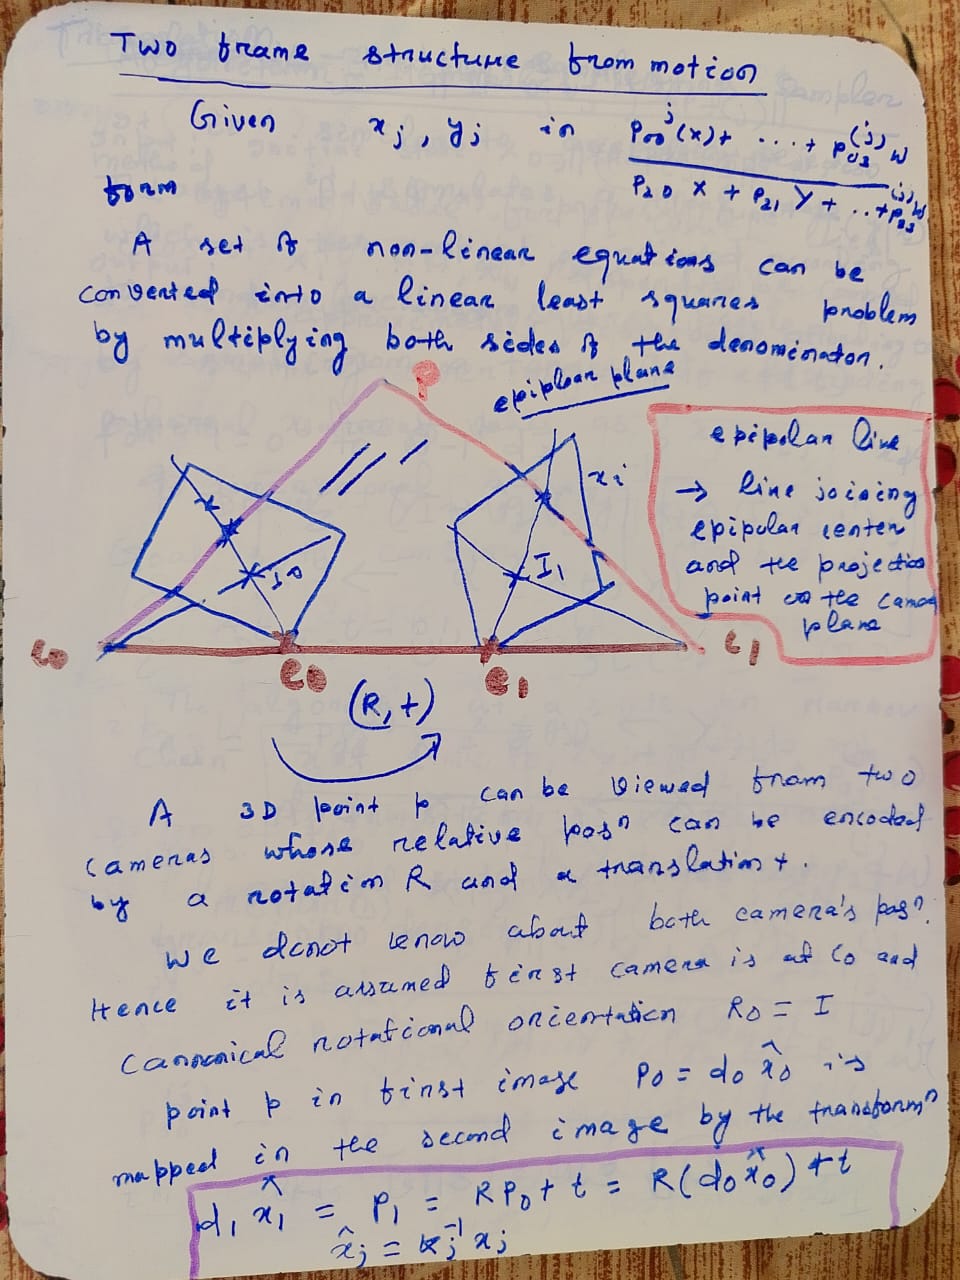 Two frame structure from motion
Given x_j, y_j in p_00^j(x) + ... + p_03^(j) W
form p_20 X + p_21 Y + .. + p_23^(j) W
A set of non-linear equations can be
converted into a linear least squares problem
by multiplying both sides of the denominator.
epiploar plane
P
epipolar line
→ line joining
epipolar center
and the projection
point on the camera
plane
x_i
l_0
l_1
c_0
e_0
e_1
c_1
(R, t)
A 3D point p can be viewed from two
cameras whose relative posⁿ can be encoded
by a rotation R and a translation t.
We donot know about both camera's posⁿ.
Hence it is assumed first camera is at c_0 and
cannonical rotational orientation R_0 = I
point p in first image P_0 = d_0 x̂_0 is
mapped in the second image by the transformⁿ
d_1 x̂_1 = P_1 = R P_0 + t = R(d_0 x̂_0) + t
x̂_j = K_j^-1 x_j